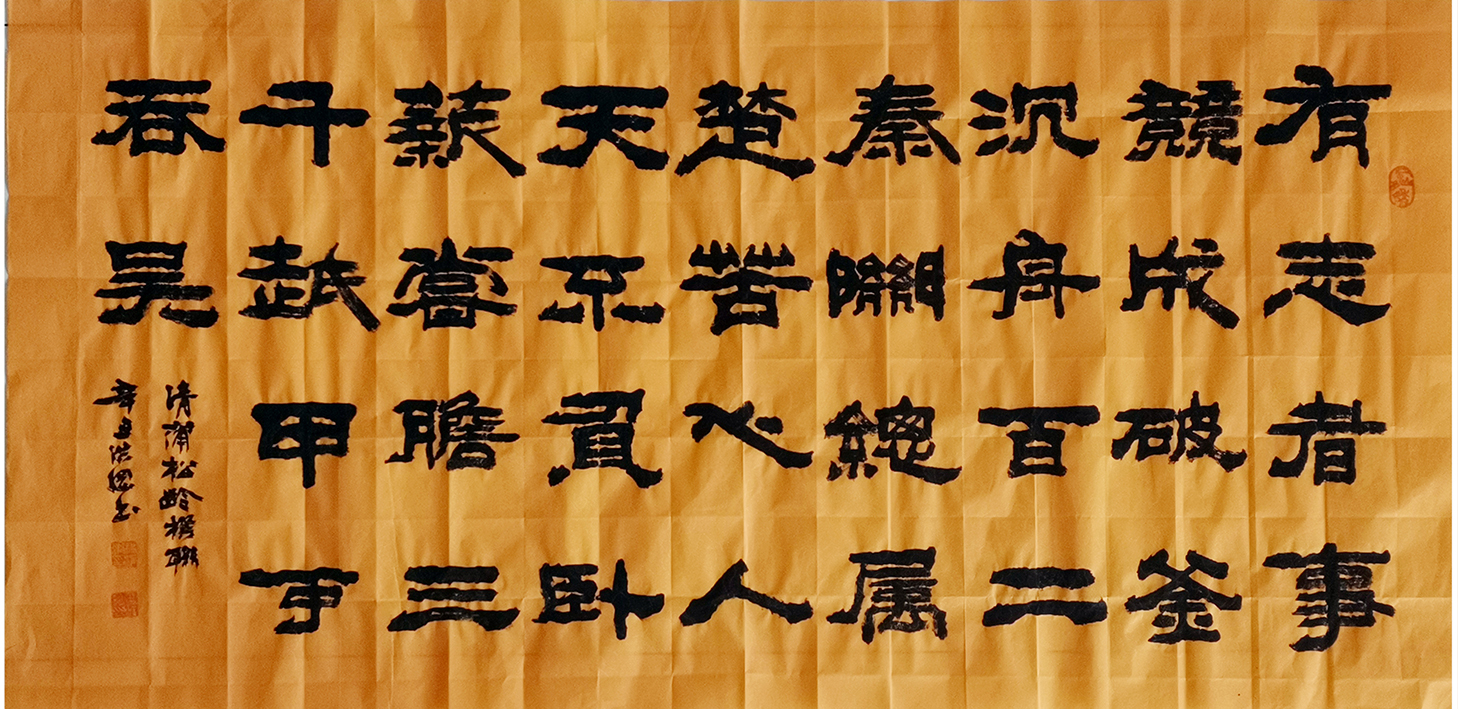 有志者事
競成破釜
沉舟百二
秦關總属
楚苦心人
天不負卧
薪嘗膽三
千越甲可
吞吴
清蒲松齡撰聯
辛丑浩书